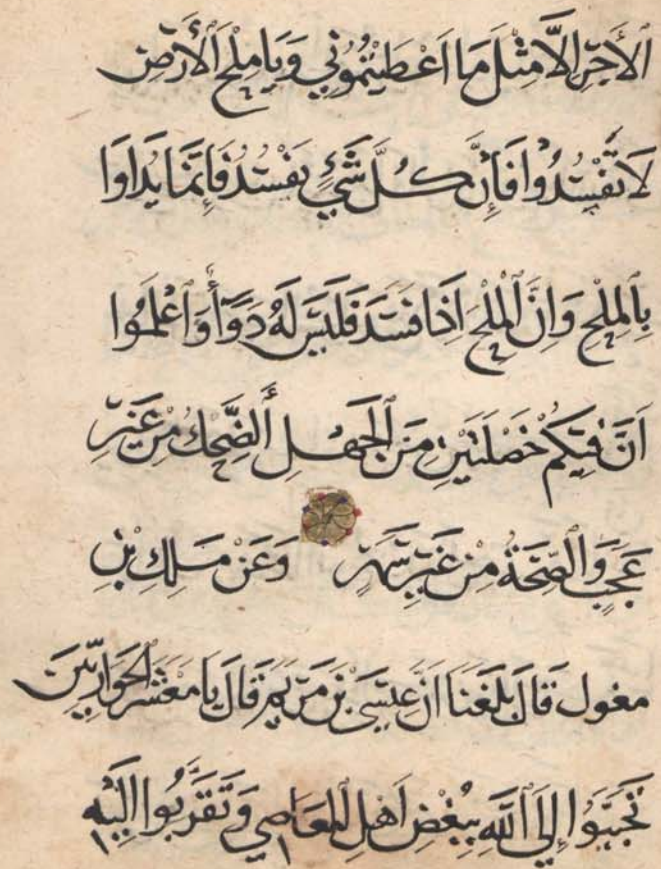 الْأَجْرِ اِلَّا مِثْلَ مَا اَعْطَيْتُمُونِي وَيَا مِلْحَ الْأَرْضِ
لَا تَفْسُدُوا فَإِنَّ كُلَّ شَيْءٍ يَفْسُدُ فَإِنَّمَا يُدَاوَا
بِالْمِلْحِ وَاِنَّ الْمِلْحَ اِذَا فَسَدَ فَلَيْسَ لَهُ دَوَآءٌ وَاعْلَمُوا
اَنَّ فِيكُمْ خَصْلَتَيْنِ مِنَ الْجَهْلِ اَلضِّحْكُ مِنْ غَيْرِ
عَجَبٍ وَالصُّبْحَةُ مِنْ غَيْرِ سَهَرٍ وَعَنْ مَلِكِ بْنِ
مغول قَالَ بَلَغَنَا اَنَّ عِيسَى بْنَ مَرْيَمَ قَالَ يَا مَعْشَرَ الْحَوَارِيِّينَ
تَحَبَّبُوا إِلَى اللَّهِ بِبُغْضِ اَهْلِ الْمَعَاصِي وَتَقَرَّبُوا اِلَيْهِ